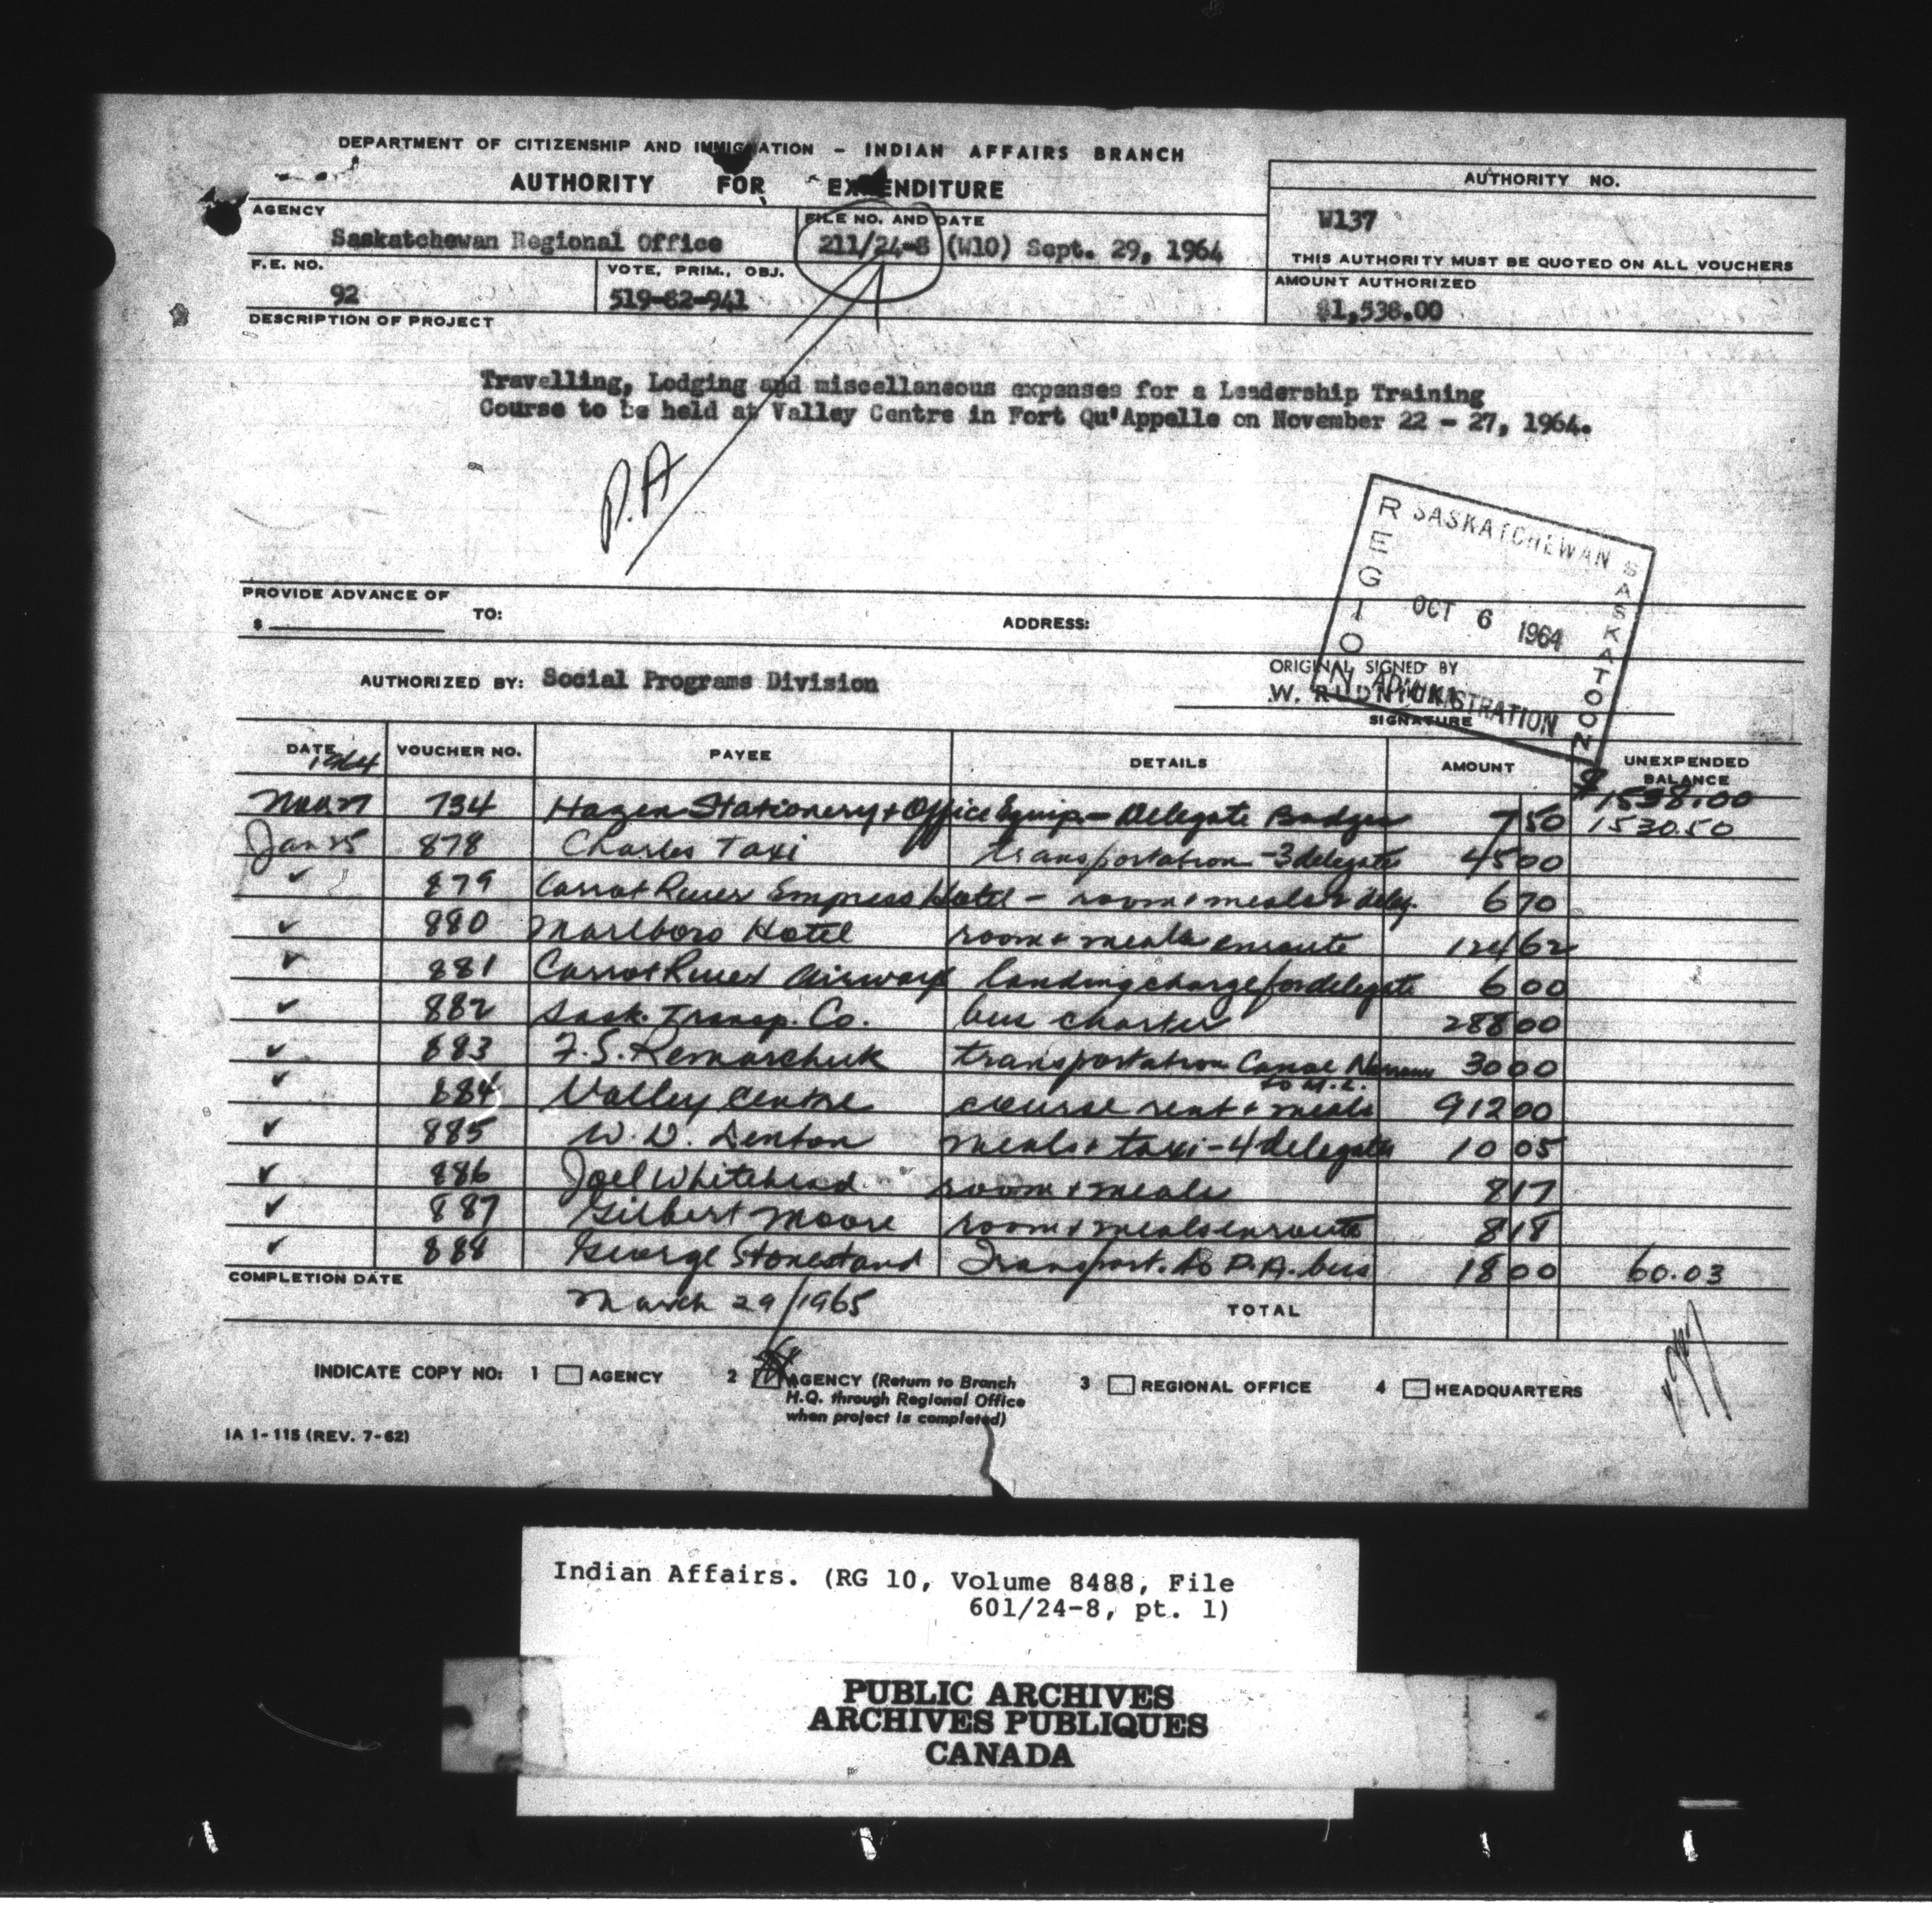 DEPARTMENT OF CITIZENSHIP AND IMMIGRATION - INDIAN AFFAIRS BRANCH
AUTHORITY FOR EXPENDITURE
AUTHORITY NO.
W137
THIS AUTHORITY MUST BE QUOTED ON ALL VOUCHERS
AGENCY
Saskatchewan Regional Office
FILE NO. AND DATE
211/24-8 (W10) Sept. 29, 1964
F.E. NO.
92
VOTE, PRIM., OBJ.
519-82-941
AMOUNT AUTHORIZED
$1,538.00
DESCRIPTION OF PROJECT
Travelling, Lodging and miscellaneous expenses for a Leadership Training
Course to be held at Valley Centre in Fort Qu'Appelle on November 22 - 27, 1964.
P.A
REGION
SASKATCHEWAN
SASKATOON
OCT 6 1964
ADMINISTRATION
PROVIDE ADVANCE OF
$ TO: ADDRESS:
AUTHORIZED BY: Social Programs Division
ORIGINAL SIGNED BY
W. RUDNICKI
SIGNATURE
DATE VOUCHER NO. PAYEE DETAILS AMOUNT UNEXPENDED BALANCE
1964 $1538.00
Nov. 27 734 Hazen Stationery + Office Equip - Delegate Badges 7 50 1530.50
Jan 25 878 Charles Taxi transportation - 3 delegates 45 00
✓ 879 Carrot River Empress Hotel - room + meals 2 deleg. 6 70
✓ 880 Marlboro Hotel room + meals enroute 124 62
✓ 881 Carrot River Airways landing charge for delegate 6 00
✓ 882 Sask. Transp. Co. bus charter 288 00
✓ 883 F.S. Remarchuk transportation Canoe Narrows 30 00
to M.L.
✓ 884 Valley Centre course rent + meals 912 00
✓ 885 W.D. Denton meals + taxi - 4 delegates 10 05
✓ 886 Joel Whitehead room + meals 8 17
✓ 887 Gilbert Moore room + meals enroute 8 18
✓ 888 George Stonestand Transport. to P.A. bus 18 00 60.03
COMPLETION DATE
March 29/1965
TOTAL
INDICATE COPY NO: 1 AGENCY 2 AGENCY (Return to Branch
H.Q. through Regional Office
when project is completed)
3 REGIONAL OFFICE 4 HEADQUARTERS
IA 1-115 (REV. 7-62)
Indian Affairs. (RG 10, Volume 8488, File
601/24-8, pt. 1)
PUBLIC ARCHIVES
ARCHIVES PUBLIQUES
CANADA